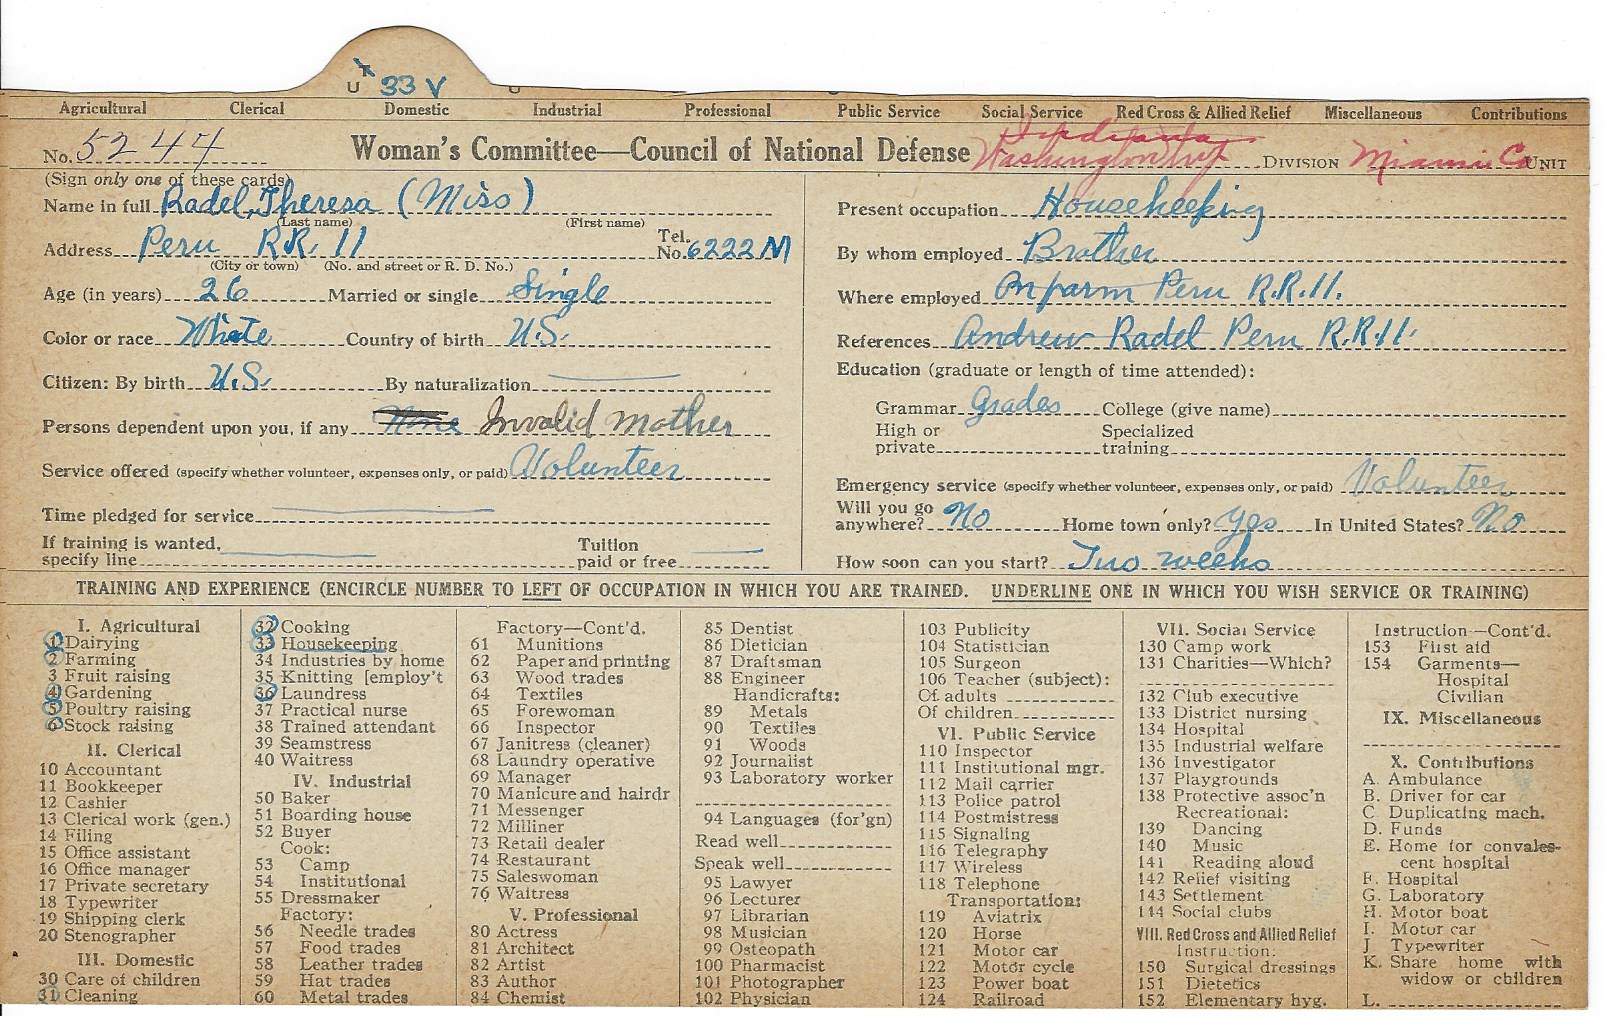 33 V
Agricultural Clerical Domestic Industrial Professional Public Service Social Service Red Cross & Allied Relief Miscellaneous Contributions
No. 5244 Woman's Committee—Council of National Defense Indiana Washington Twp DIVISION Miami Co UNIT
(Sign only one of these cards)
Name in full Radel, Theresa (Miss)
(Last name) (First name)
Address Peru R.R. 11 Tel. No. 6222 M
(City or town) (No. and street or R. D. No.)
Age (in years) 26 Married or single Single
Color or race White Country of birth U.S.
Citizen: By birth U.S. By naturalization
Persons dependent upon you, if any None Invalid Mother
Service offered (specify whether volunteer, expenses only, or paid) Volunteer
Time pledged for service
If training is wanted, specify line Tuition paid or free
Present occupation Housekeeping
By whom employed Brother
Where employed On farm Peru R.R. 11.
References Andrew Radel Peru R.R. 11.
Education (graduate or length of time attended):
Grammar Grades College (give name)
High or private Specialized training
Emergency service (specify whether volunteer, expenses only, or paid) Volunteer
Will you go anywhere? No Home town only? Yes In United States? No
How soon can you start? Two weeks
TRAINING AND EXPERIENCE (ENCIRCLE NUMBER TO LEFT OF OCCUPATION IN WHICH YOU ARE TRAINED. UNDERLINE ONE IN WHICH YOU WISH SERVICE OR TRAINING)
I. Agricultural
1 Dairying
2 Farming
3 Fruit raising
4 Gardening
5 Poultry raising
6 Stock raising
II. Clerical
10 Accountant
11 Bookkeeper
12 Cashier
13 Clerical work (gen.)
14 Filing
15 Office assistant
16 Office manager
17 Private secretary
18 Typewriter
19 Shipping clerk
20 Stenographer
III. Domestic
30 Care of children
31 Cleaning
32 Cooking
33 Housekeeping
34 Industries by home
35 Knitting [employ't
36 Laundress
37 Practical nurse
38 Trained attendant
39 Seamstress
40 Waitress
IV. Industrial
50 Baker
51 Boarding house
52 Buyer
Cook:
53 Camp
54 Institutional
55 Dressmaker
Factory:
56 Needle trades
57 Food trades
58 Leather trades
59 Hat trades
60 Metal trades
Factory—Cont'd.
61 Munitions
62 Paper and printing
63 Wood trades
64 Textiles
65 Forewoman
66 Inspector
67 Janitress (cleaner)
68 Laundry operative
69 Manager
70 Manicure and hairdr
71 Messenger
72 Milliner
73 Retail dealer
74 Restaurant
75 Saleswoman
76 Waitress
V. Professional
80 Actress
81 Architect
82 Artist
83 Author
84 Chemist
85 Dentist
86 Dietician
87 Draftsman
88 Engineer
Handicrafts:
89 Metals
90 Textiles
91 Woods
92 Journalist
93 Laboratory worker
94 Languages (for'gn)
Read well
Speak well
95 Lawyer
96 Lecturer
97 Librarian
98 Musician
99 Osteopath
100 Pharmacist
101 Photographer
102 Physician
103 Publicity
104 Statistician
105 Surgeon
106 Teacher (subject):
Of adults
Of children
VI. Public Service
110 Inspector
111 Institutional mgr.
112 Mail carrier
113 Police patrol
114 Postmistress
115 Signaling
116 Telegraphy
117 Wireless
118 Telephone
Transportation:
119 Aviatrix
120 Horse
121 Motor car
122 Motor cycle
123 Power boat
124 Railroad
VII. Social Service
130 Camp work
131 Charities—Which?
132 Club executive
133 District nursing
134 Hospital
135 Industrial welfare
136 Investigator
137 Playgrounds
138 Protective assoc'n
Recreational:
139 Dancing
140 Music
141 Reading aloud
142 Relief visiting
143 Settlement
144 Social clubs
VIII. Red Cross and Allied Relief
Instruction:
150 Surgical dressings
151 Dietetics
152 Elementary hyg.
Instruction—Cont'd.
153 First aid
154 Garments—
Hospital
Civilian
IX. Miscellaneous
X. Contributions
A. Ambulance
B. Driver for car
C Duplicating mach.
D. Funds
E. Home for convales-
cent hospital
F. Hospital
G. Laboratory
H. Motor boat
I. Motor car
J Typewriter
K. Share home with
widow or children
L.